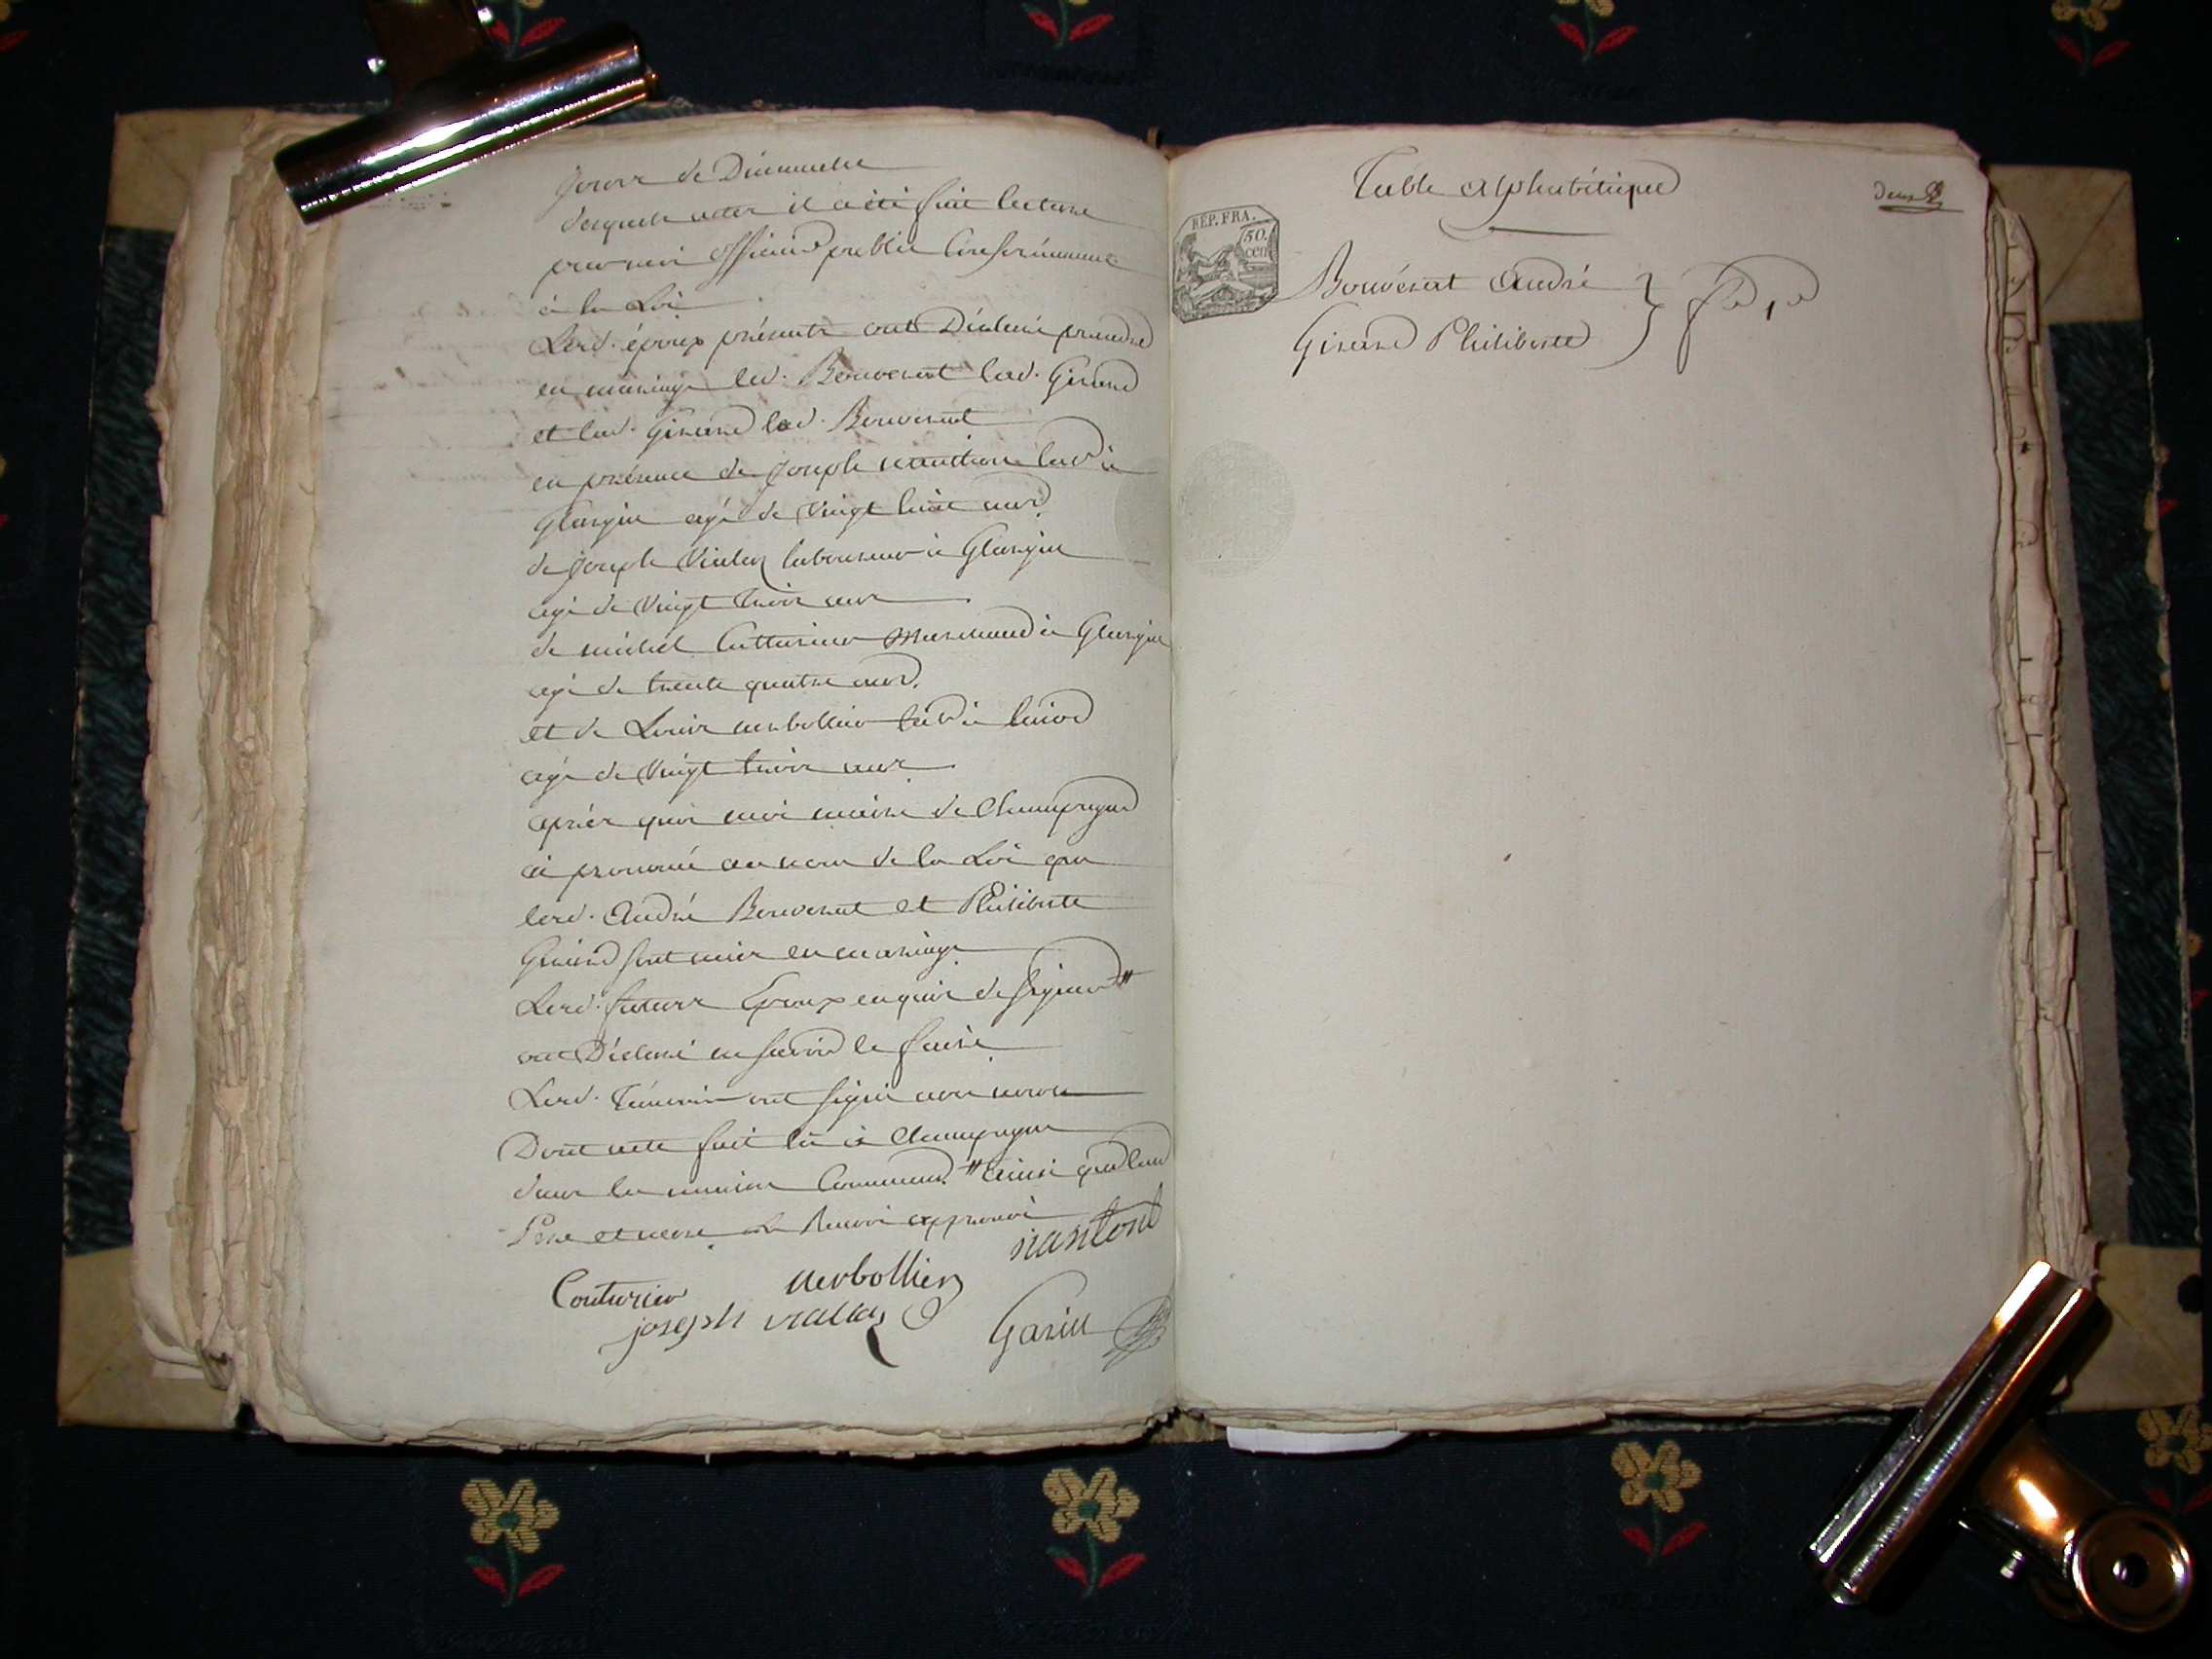 jours de Dimanche
desquels actes il a été fait lecture
par moi officier public Conformément
à la Loi
Lesd. époux présents ont Déclaré prendre
en mariage led. Bouverat lad. Girard
et lad. Girard led. Bouverat
en présence de Joseph lab à
Glargin agé de Vingt huit ans
de Joseph Viallez laboureur à Glargin
agé de Vingt trois ans
de michel Cutturier Marchand à Glargin
agé de trente quatre ans
et de Louis aerbollier lab à
agé de Vingt trois ans
après quoi moi maire de Champagne
ai prononcé au nom de la Loi que
lesd. André Bouverat et Philiberte
Girard sont unis en mariage
Lesd. futurs Epoux enquis de signer "
ont Déclaré ne savoir le faire
Lesd. Témoins ont signé avec nous
Dont acte fait lu à Champagne
dans la maison Commune. " ainsi que leurs
Pere et mere Renvoi approuvé
nantond
Couturier aerbollier
joseph viallez
Garin
Table alphabétique
deux
RÉP. FRA.
50.
cen
Bouvérat André
Girard Philiberte } fo 1o